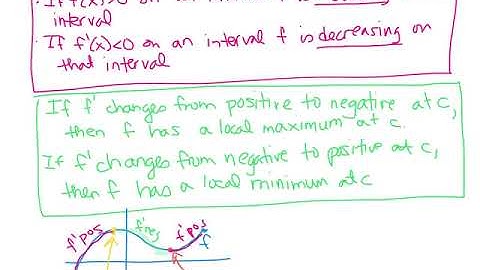 interval
· If f'(x)<0 on an interval f is decreasing on
that interval
If f' changes from positive to negative at c,
then f has a local maximum at c.
If f' changes from negative to positive at c,
then f has a local minimum at c
f' pos
f' neg
f' pos
f